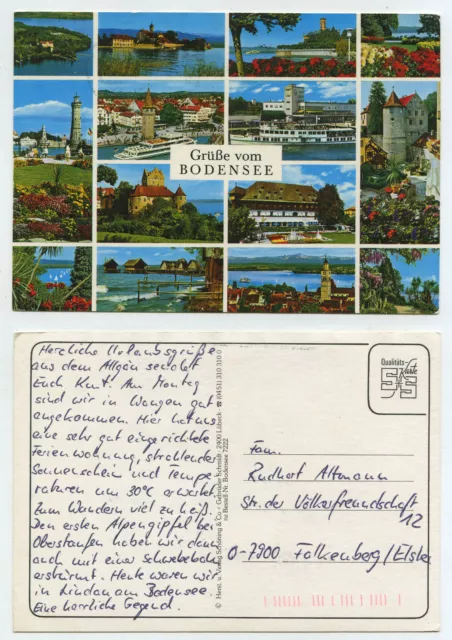 Grüße vom
BODENSEE
Herzliche Urlaubsgrüße
aus dem Allgäu sendet
Euch Kurt. Am Montag
sind wir in Wangen gut
angekommen. Hier hat uns
eine sehr gut eingerichtete
Ferienwohnung, strahlender
Sonnenschein und Tempe-
raturen um 30°C erwartet.
Zum Wandern viel zu heiß.
Den ersten Alpengipfel bei
Oberstaufen haben wir dann
auch mit einer Schwebebahn
erstürmt. Heute waren wir
in Lindau am Bodensee.
Eine herrliche Gegend.
© Herst. u. Verlag Schöning & Co + Gebrüder Schmidt · 2400 Lübeck · ☎ (0451) 310 310 0
Bodensee 7222
Qualitäts-
Karte
Fam.
Rudhart Altmann
Str. der Völkerfreundschaft
12
O-7900 Falkenberg/Elster